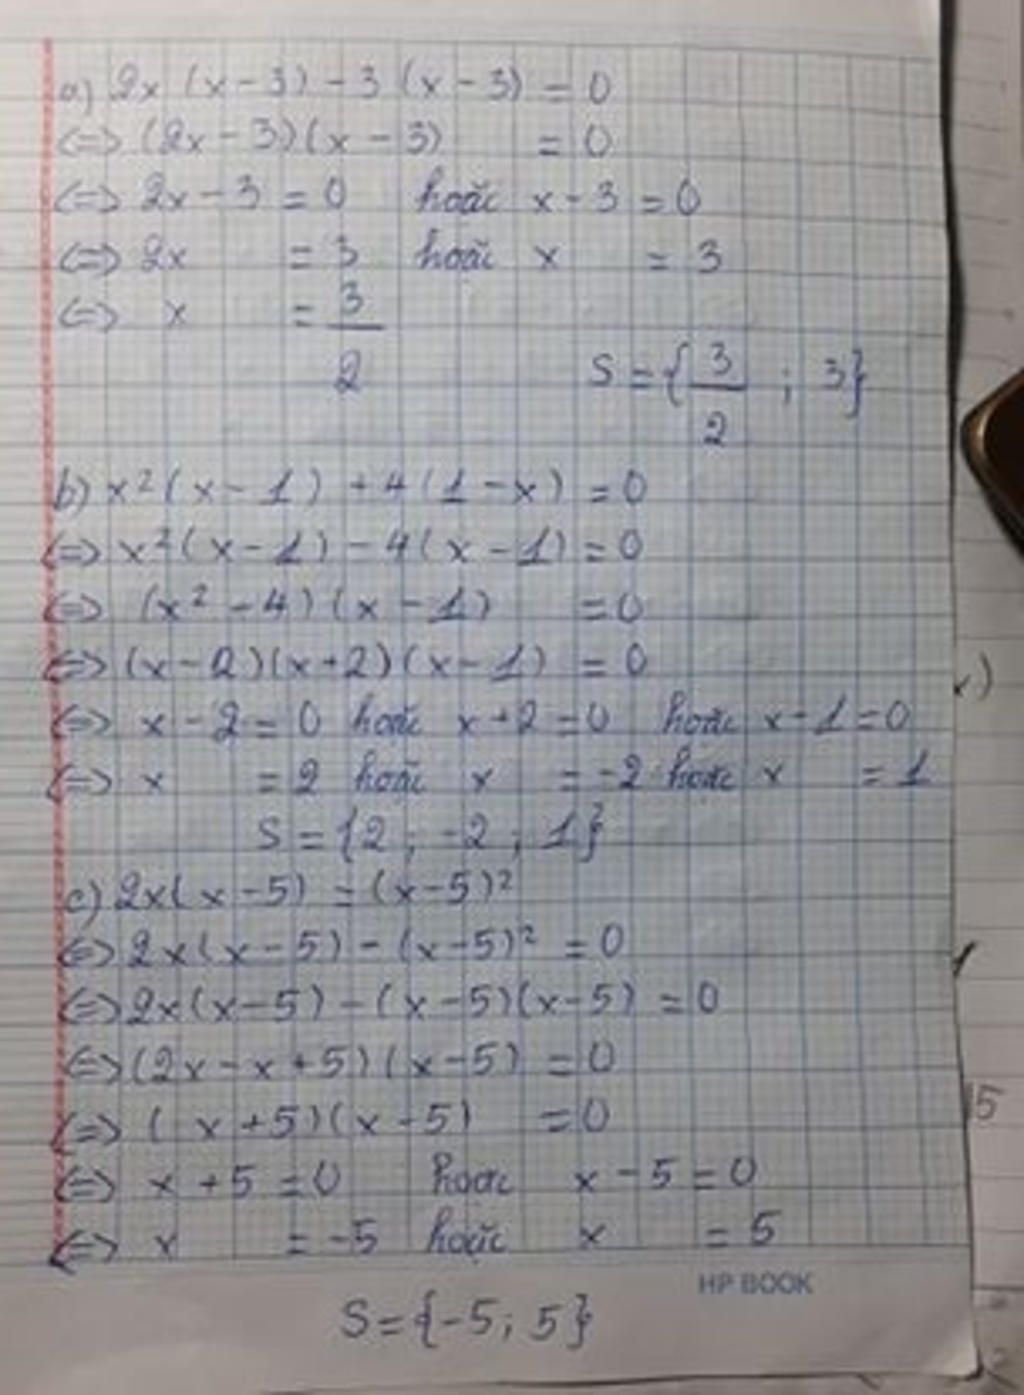 a) 2x (x - 3) - 3 (x - 3) = 0
<=> (2x - 3)(x - 3) = 0
<=> 2x - 3 = 0 hoặc x - 3 = 0
<=> 2x = 3 hoặc x = 3
<=> x = 3/2
S = { 3/2 ; 3}
b) x²(x - 1) + 4(1 - x) = 0
<=> x²(x - 1) - 4(x - 1) = 0
<=> (x² - 4)(x - 1) = 0
<=> (x - 2)(x + 2)(x - 1) = 0
<=> x - 2 = 0 hoặc x + 2 = 0 hoặc x - 1 = 0
<=> x = 2 hoặc x = -2 hoặc x = 1
S = {2 ; -2 ; 1}
c) 2x(x - 5) = (x - 5)²
<=> 2x(x - 5) - (x - 5)² = 0
<=> 2x(x - 5) - (x - 5)(x - 5) = 0
<=> (2x - x + 5)(x - 5) = 0
<=> (x + 5)(x - 5) = 0
<=> x + 5 = 0 hoặc x - 5 = 0
<=> x = -5 hoặc x = 5
HP BOOK
S = {-5 ; 5}